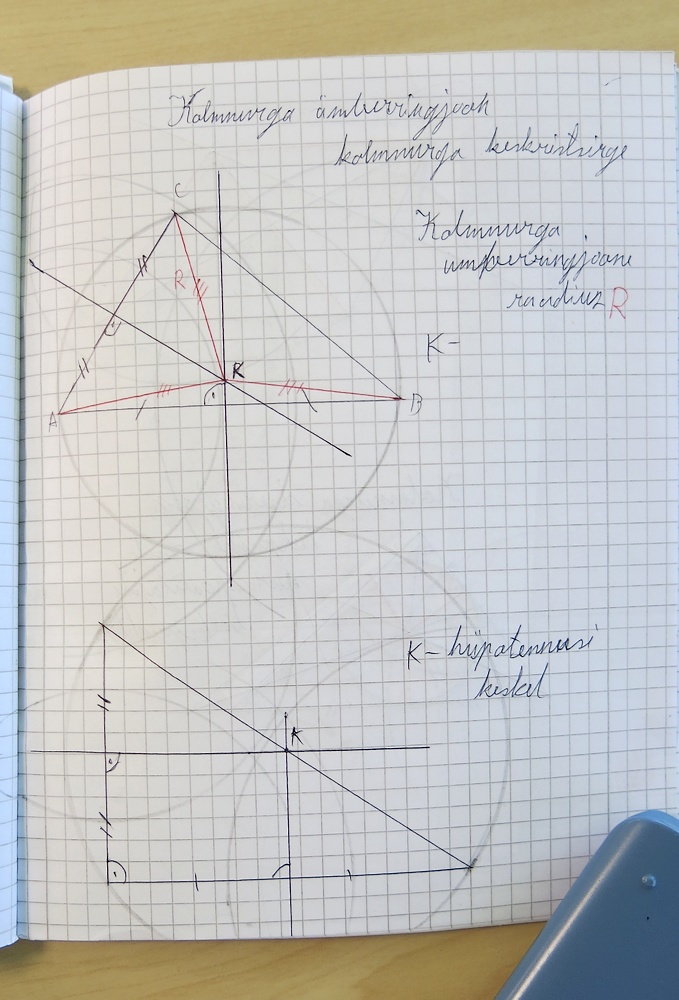 Kolmnurga ümberringjooh
kolmnurga keskristsirge
C
Kolmnurga
umberringjoone
raadius R
R
K-
K
A
B
K- hüpotenuusi
keskel
K